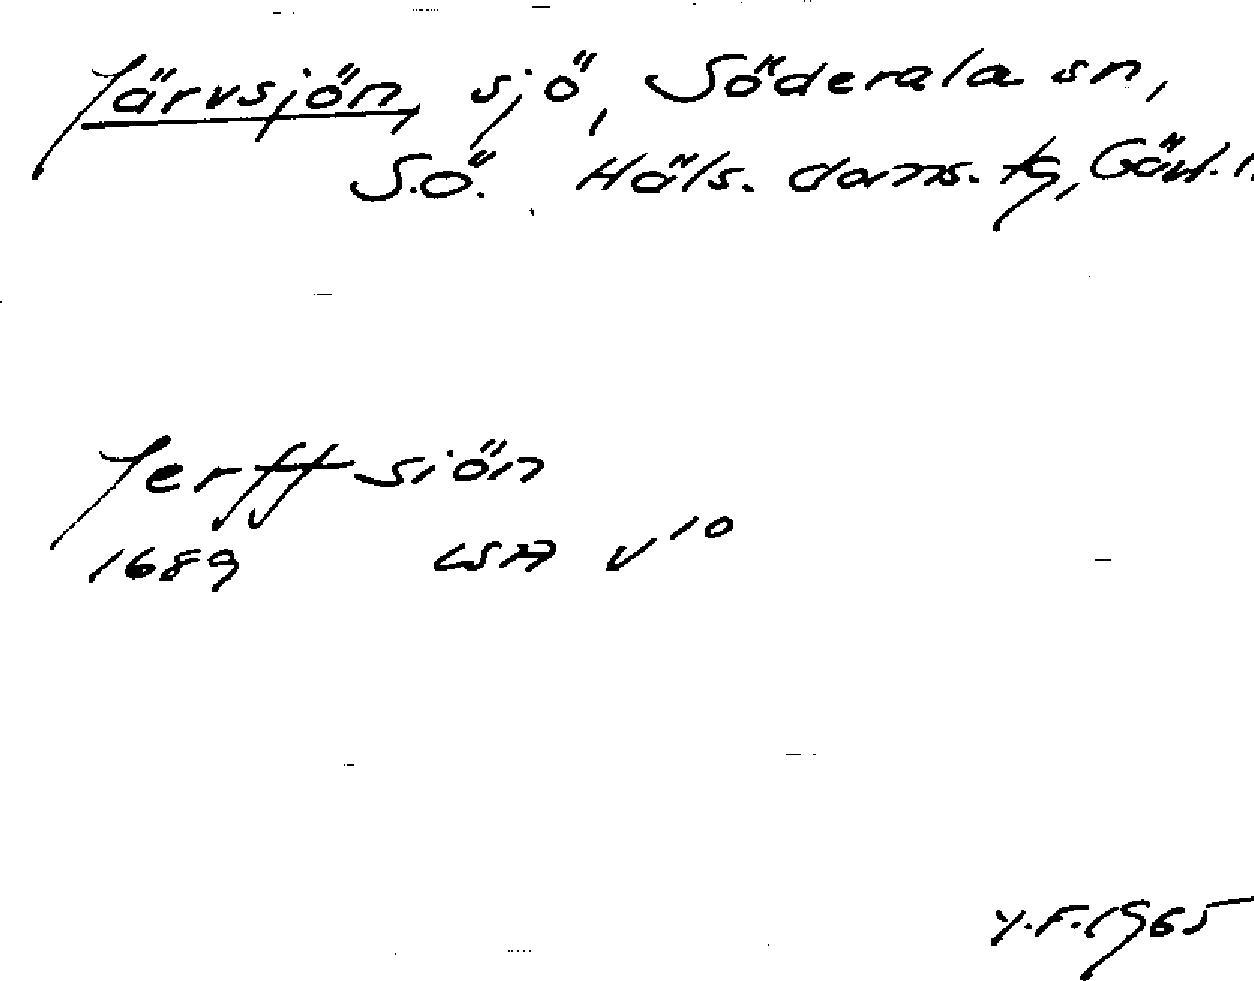 Järvsjön, sjö, Söderala sn,
S.Ö. Häls. doms. tg, Gävl. l.
Jerffsiön
1689 LSA v 10
Y.F. 1965